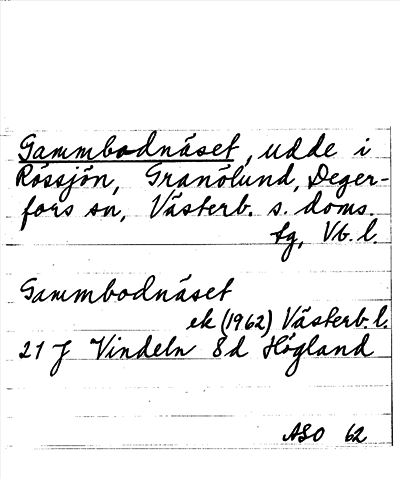 Gammbodnäset, udde i
Rössjön, Granölund, Deger-
fors sn, Västerb. s. doms.
tg, Vb. l.
Gammbodnäset
ek (1962) Västerb. l.
21 J Vindeln 8d Högland
ASO 62